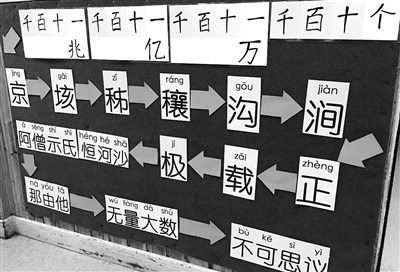 千百十一 千百十一 千百十一 千百十个
兆 亿 万
jīng gāi zǐ ráng gōu jiàn
京 垓 秭 穰 沟 涧
zhèng
正
zǎi
载
jí
极
héng hé shā
恒河沙
ā sēng shì shì
阿僧示氏
nà yóu tā
那由他
wú liàng dà shù
无量大数
bù kě sī yì
不可思议